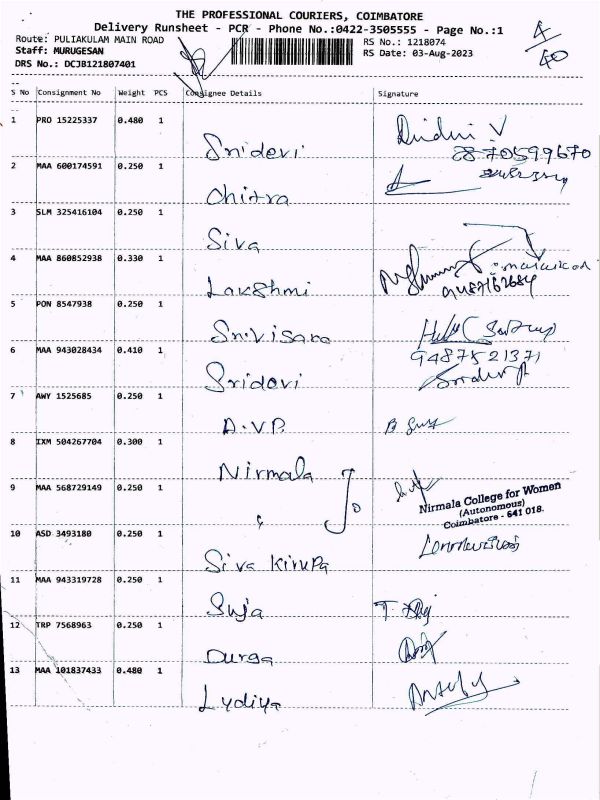 THE PROFESSIONAL COURIERS, COIMBATORE
Delivery Runsheet - PCR - Phone No.:0422-3505555 - Page No.:1
Route: PULIAKULAM MAIN ROAD
RS No.: 1218074
Staff: MURUGESAN
RS Date: 03-Aug-2023
DRS No.: DCJB121807401
4/40
S No Consignment No Weight PCS Consignee Details Signature
1 PRO 15225337 0.480 1
Sridevi
2 MAA 600174591 0.250 1
Chitra
3 SLM 325416104 0.250 1
Siva
4 MAA 860852938 0.330 1
Lakshmi
9487162684
5 PON 8547938 0.250 1
Srivisara
6 MAA 943028434 0.410 1
Sridevi
9487521371
7 AWY 1525685 0.250 1
A.V.P.
8 IXM 504267704 0.300 1
Nirmala
9 MAA 568729149 0.250 1
Nirmala College for Women
(Autonomous)
Coimbatore - 641 018.
10 ASD 3493180 0.250 1
Siva Kirupa
11 MAA 943319728 0.250 1
Suja
12 TRP 7568963 0.250 1
Durga
13 MAA 101837433 0.480 1
Lydiya